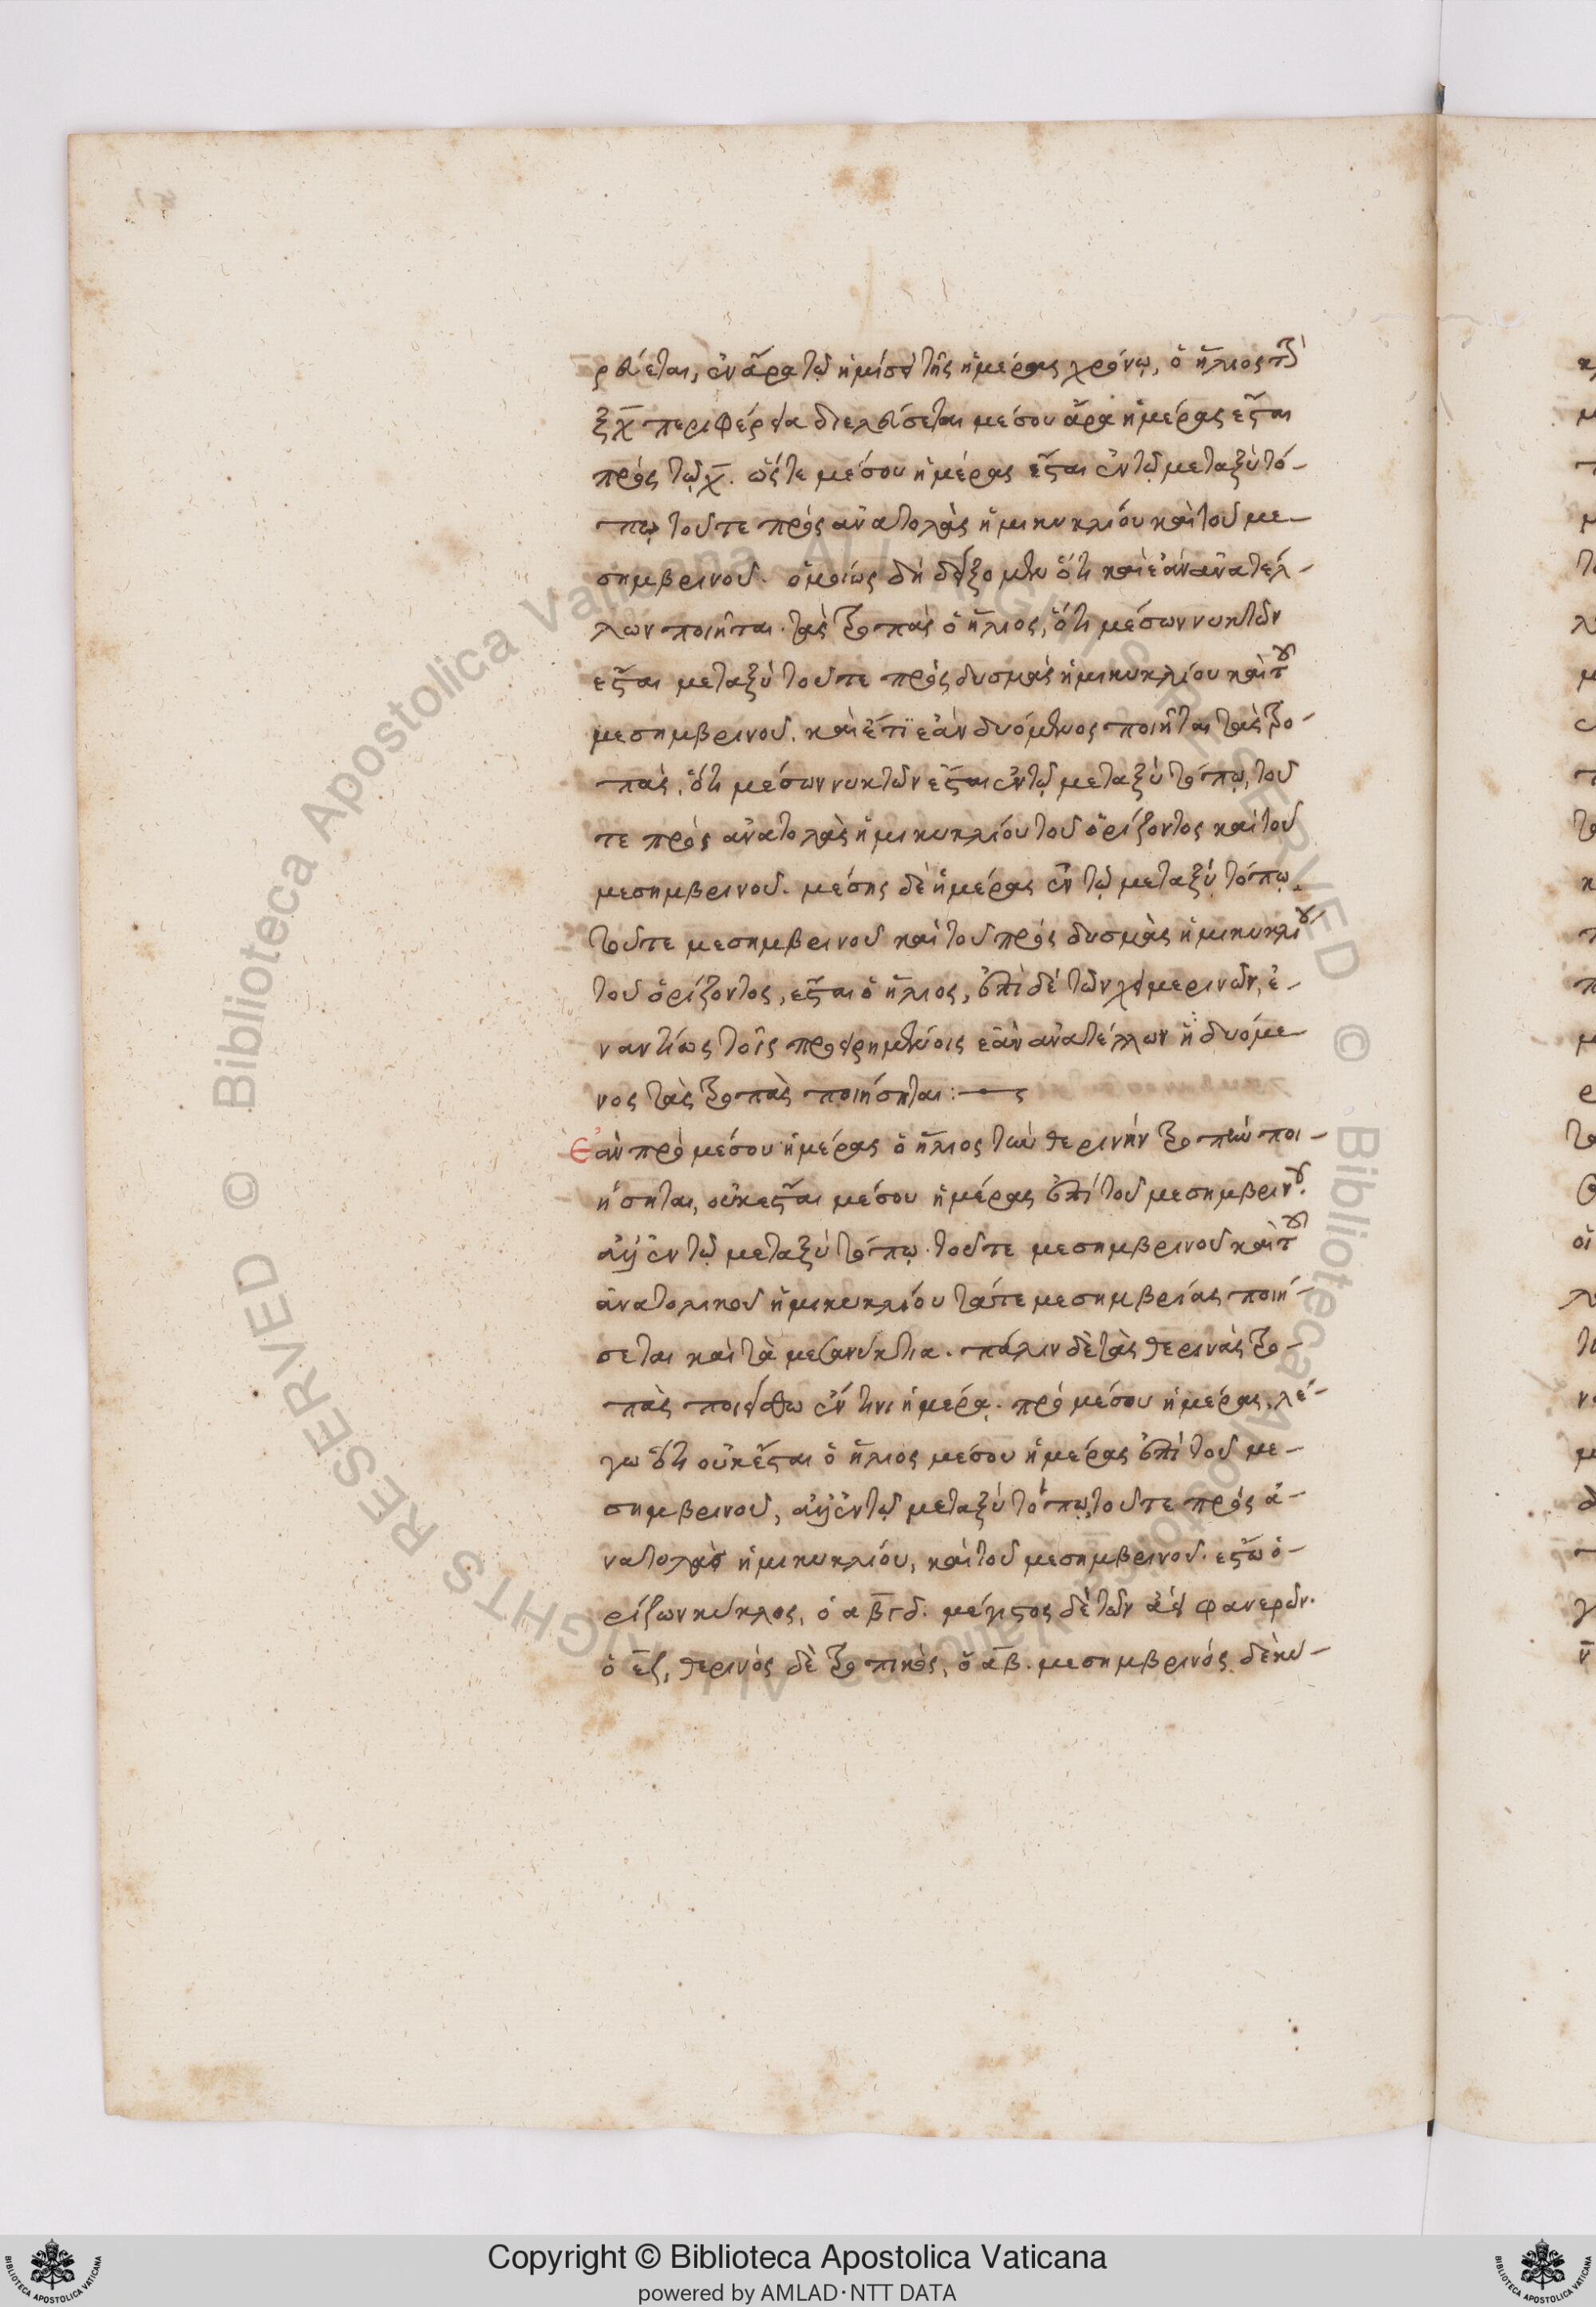 ρεύεται, ἐν ἄρα τῷ ἡμίσει τῆς ἡμέρας χρόνῳ, ὁ ἥλιος τὴν
ξχ περιφέρεια διελεύσεται μέσου ἄρα ἡμέρας ἔσται
πρὸς τῷ χ. ὥστε μέσου ἡμέρας ἔσται ἐν τῷ μεταξὺ τό-
πῳ τοῦ τε πρὸς ἀνατολὰς ἡμικυκλίου καὶ τοῦ με-
σημβρινοῦ. ὁμοίως δὴ δείξομεν ὅτι καὶ ἐὰν ἀνατέλ-
λων ποιῆται τὰς τροπὰς ὁ ἥλιος, ὅτι μέσων νυκτῶν
ἔσται μεταξὺ τοῦ τε πρὸς δυσμὰς ἡμικυκλίου καὶ τοῦ
μεσημβρινοῦ. καὶ ἔτι ἐὰν δυόμενος ποιῆται τὰς τρο-
πὰς, ὅτι μέσων νυκτῶν ἔσται ἐν τῷ μεταξὺ τόπῳ, τοῦ
τε πρὸς ἀνατολὰς ἡμικυκλίου τοῦ ὁρίζοντος καὶ τοῦ
μεσημβρινοῦ. μέσης δὲ ἡμέρας ἐν τῷ μεταξὺ τόπῳ
τοῦ τε μεσημβρινοῦ καὶ τοῦ πρὸς δυσμὰς ἡμικυκλίου
τοῦ ὁρίζοντος, ἔσται ὁ ἥλιος, ἐπὶ δὲ τῶν χειμερινῶν, ἐ-
ναντίως τοῖς προειρημένοις ἐὰν ἀνατέλλων ἢ δυόμε
νος τὰς τροπὰς ποιήσηται:
Ἐὰν πρὸ μέσου ἡμέρας ὁ ἥλιος τὴν θερινὴν τροπὴν ποι-
ήσηται, οὐκ ἔσται μέσου ἡμέρας ἐπὶ τοῦ μεσημβρινοῦ.
ἀλλ' ἐν τῷ μεταξὺ τόπῳ τοῦ τε μεσημβρινοῦ καὶ τοῦ
ἀνατολικοῦ ἡμικυκλίου τάς τε μεσημβρίας ποιή-
σεται καὶ τὰ μεσανύκτια. πάλιν δὲ τὰς θερινὰς τρο-
πὰς ποιείσθω ἔν τινι ἡμέρᾳ. πρὸ μέσου ἡμέρας, λέ-
γω ὅτι οὐκ ἔσται ὁ ἥλιος μέσου ἡμέρας ἐπὶ τοῦ με-
σημβρινοῦ, ἀλλ' ἐν τῷ μεταξὺ τόπῳ, τοῦ τε πρὸς ἀ-
νατολὰς ἡμικυκλίου, καὶ τοῦ μεσημβρινοῦ. ἔστω ὁ-
ρίζων κύκλος, ὁ αβγδ. μέγιστος δὲ τῶν ἀεὶ φανερῶν.
ὁ εζ, θερινὸς δὲ τροπικὸς, ὁ αβ. μεσημβρινὸς δὲ κύ-
Copyright © Biblioteca Apostolica Vaticana
powered by AMLAD·NTT DATA